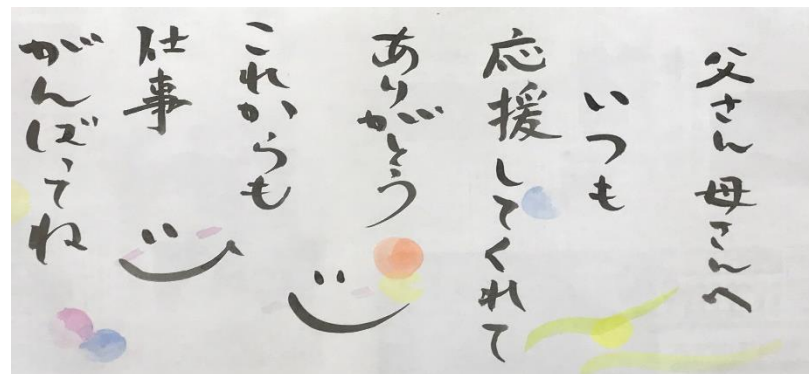 父さん 母さんへ
いつも
応援してくれて
ありがとう
これからも
仕事
がんばってね